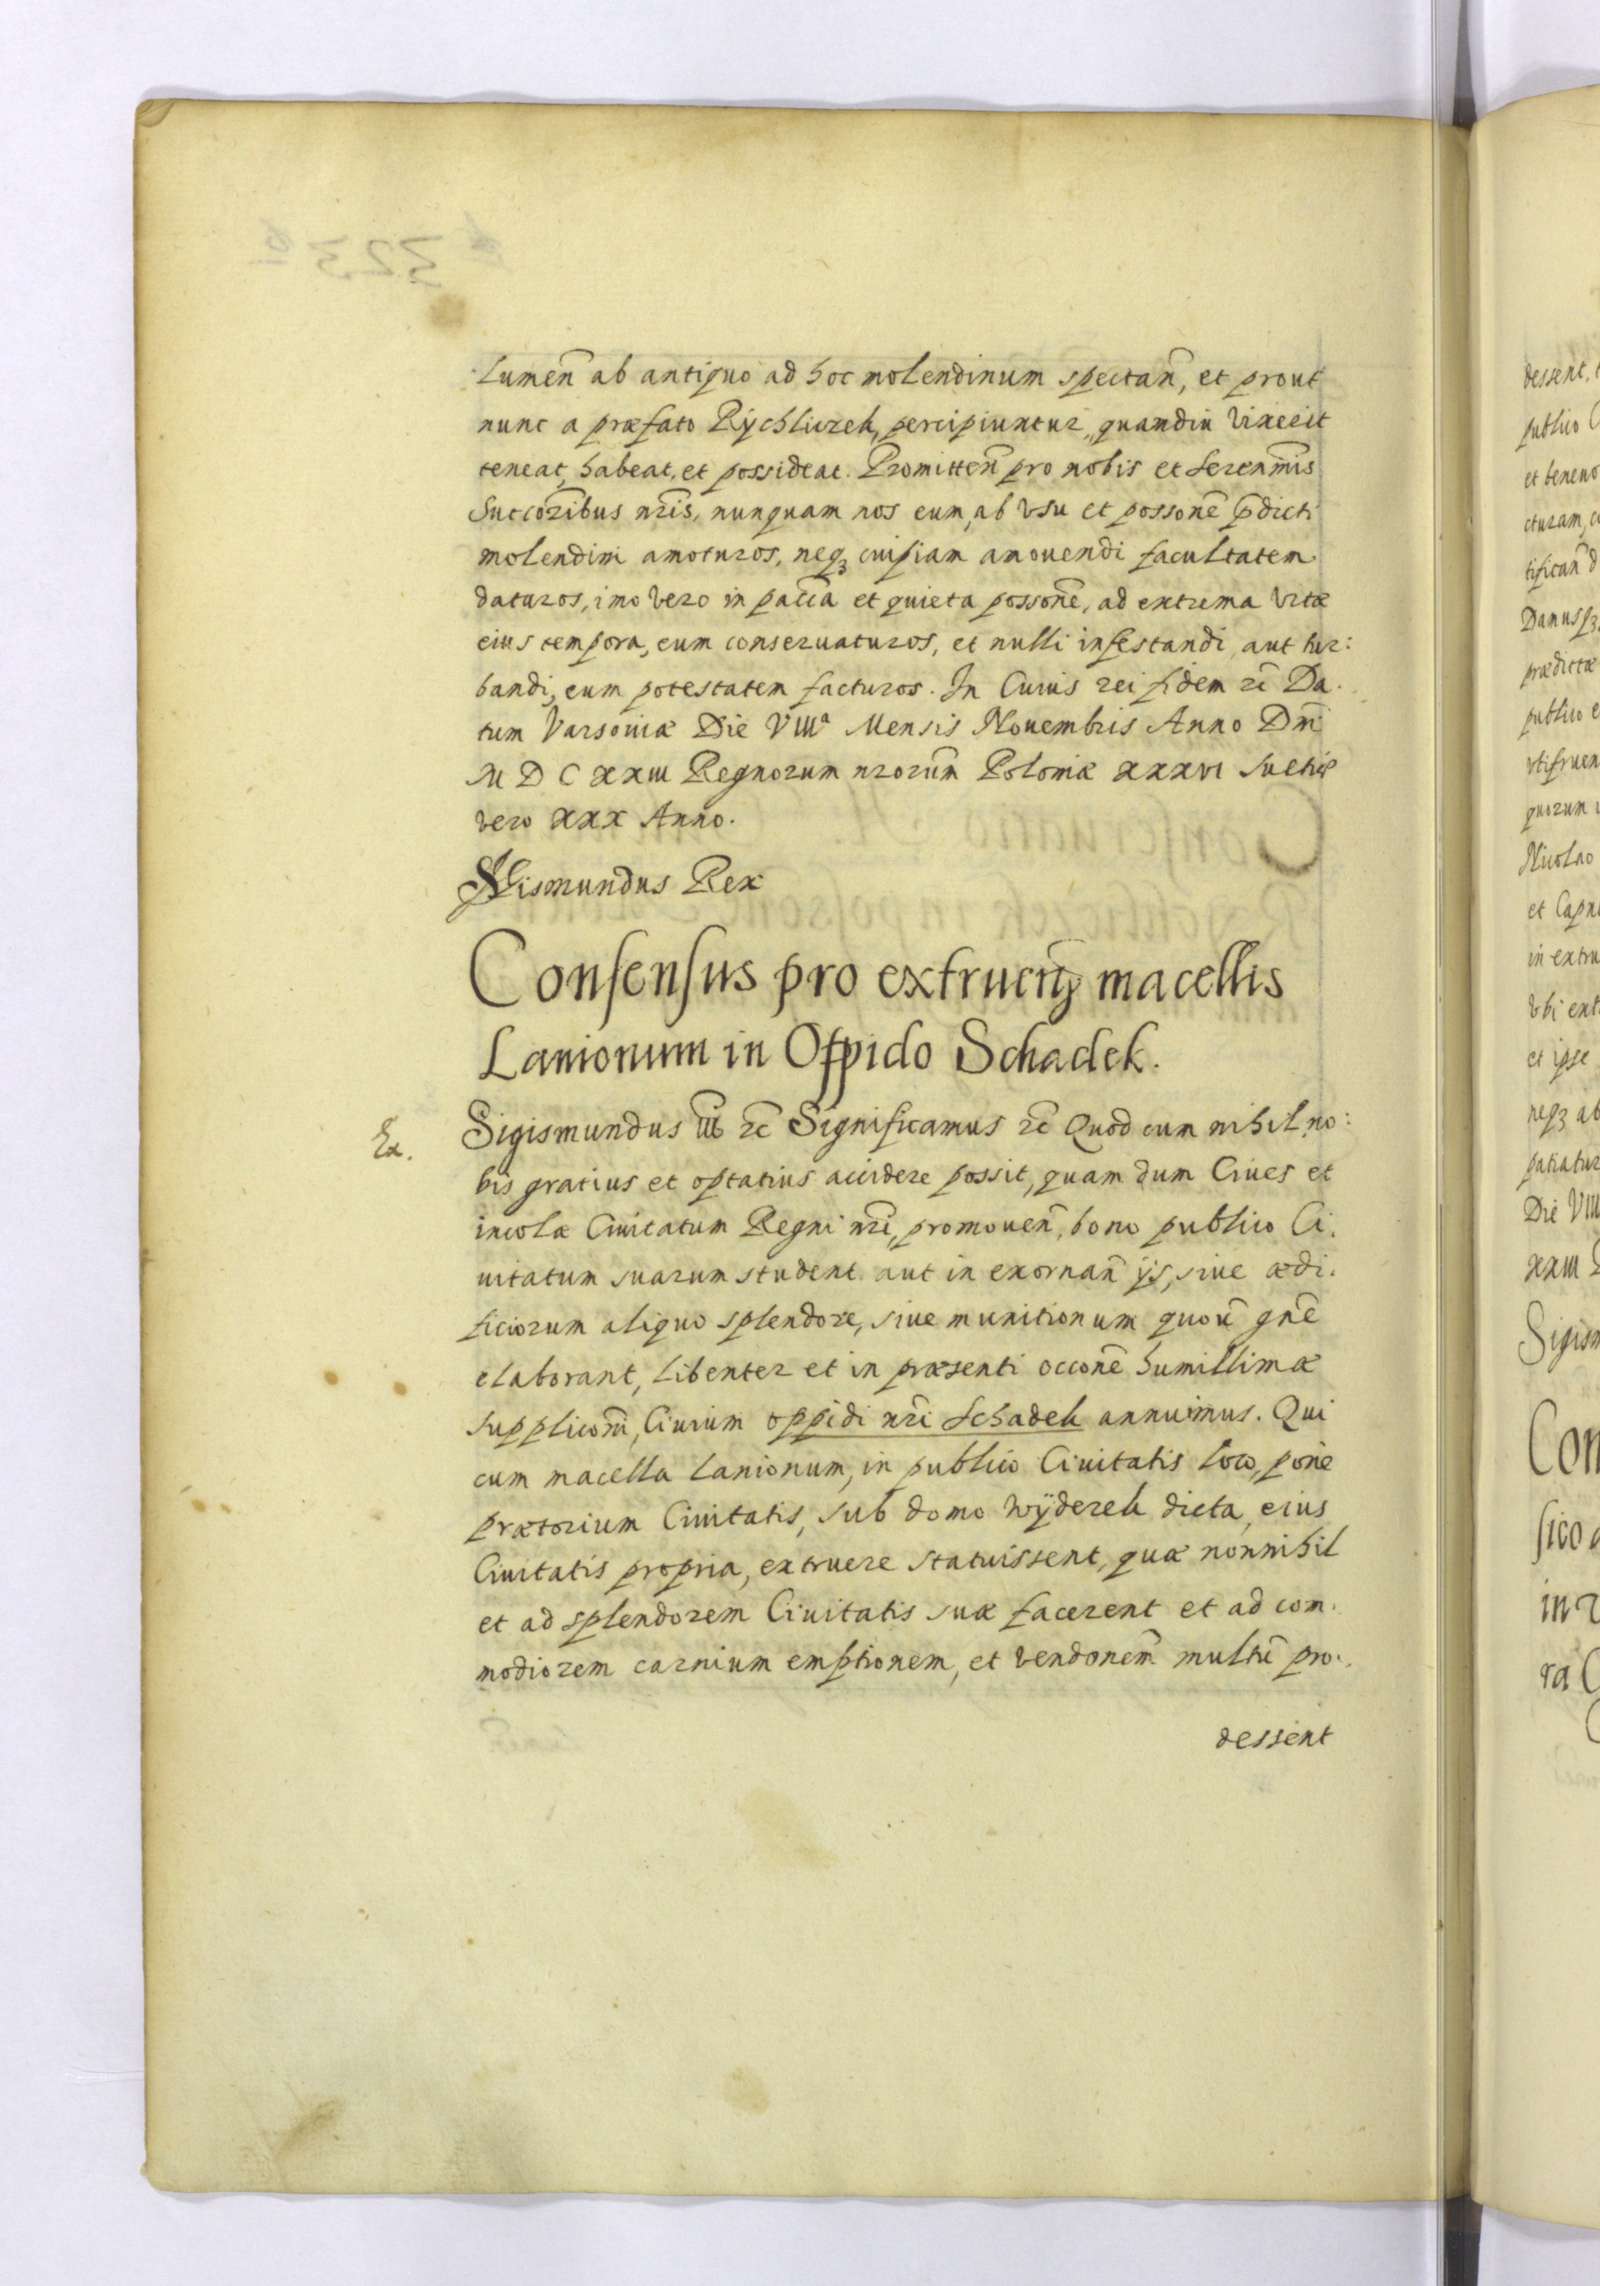 lumen̄ ab antiquo ad hoc molendinum spectan̄, et prout
nunc a præfato Rychliczek, percipiuntur, quamdiu vixerit
teneat, habeat, et possideat. Promitten̄ pro nobis et Serenm̄is
Succōribus nr̄is, nunquam nos eum, ab vsu et possonē p̄dicti
molendini amoturos, neqꝫ cuipiam amouendi facultatem
daturos, imo vero in pacc̄a et quieta possonē, ad extrema vitæ
eius tempora, eum conseruaturos, et nulli infestandi, aut tur:
bandi, eum potestatem facturos. In Cuius rei fidem ꝛc̄ Da.
tum Varsouiæ Die VIIIª Mensis Nouembris Anno Dnī
M D C XXIII Regnorum nrorum̄ Poloniæ XXXVI Suetiæ
vero XXX Anno.
Sigismundus Rex
Consensus pro extruen̄ macellis
Lanionum in Oppido Schadek.
Ex.
Sigismundus III ꝛc̄ Significamus ꝛc̄ Quod cum nihil no:
bis gratius et optatius accidere possit, quam dum Ciues et
incolæ Ciuitatum Regni nr̄i, promouen̄, bono publico Ci.
uitatum suarum student aut in exornan̄ ijs, siue ædi.
ficiorum aliquo splendore, siue munitionum quouē gn̄e
elaborant, libenter et in præsenti occonē humillimæ
supplicōni, Ciuium oppidi nr̄i Schadek annuimus. Qui
cum macella Lanionum, in publico Ciuitatis loco, pone
prætorium Ciuitatis, sub domo Wÿderek dicta, eius
Ciuitatis propria, extruere statuissent, quæ nonnihil
et ad splendorem Ciuitatis suæ facerent et ad com.
modiorem carnium emptionem, et vendonem̄ multū pro.
dessent